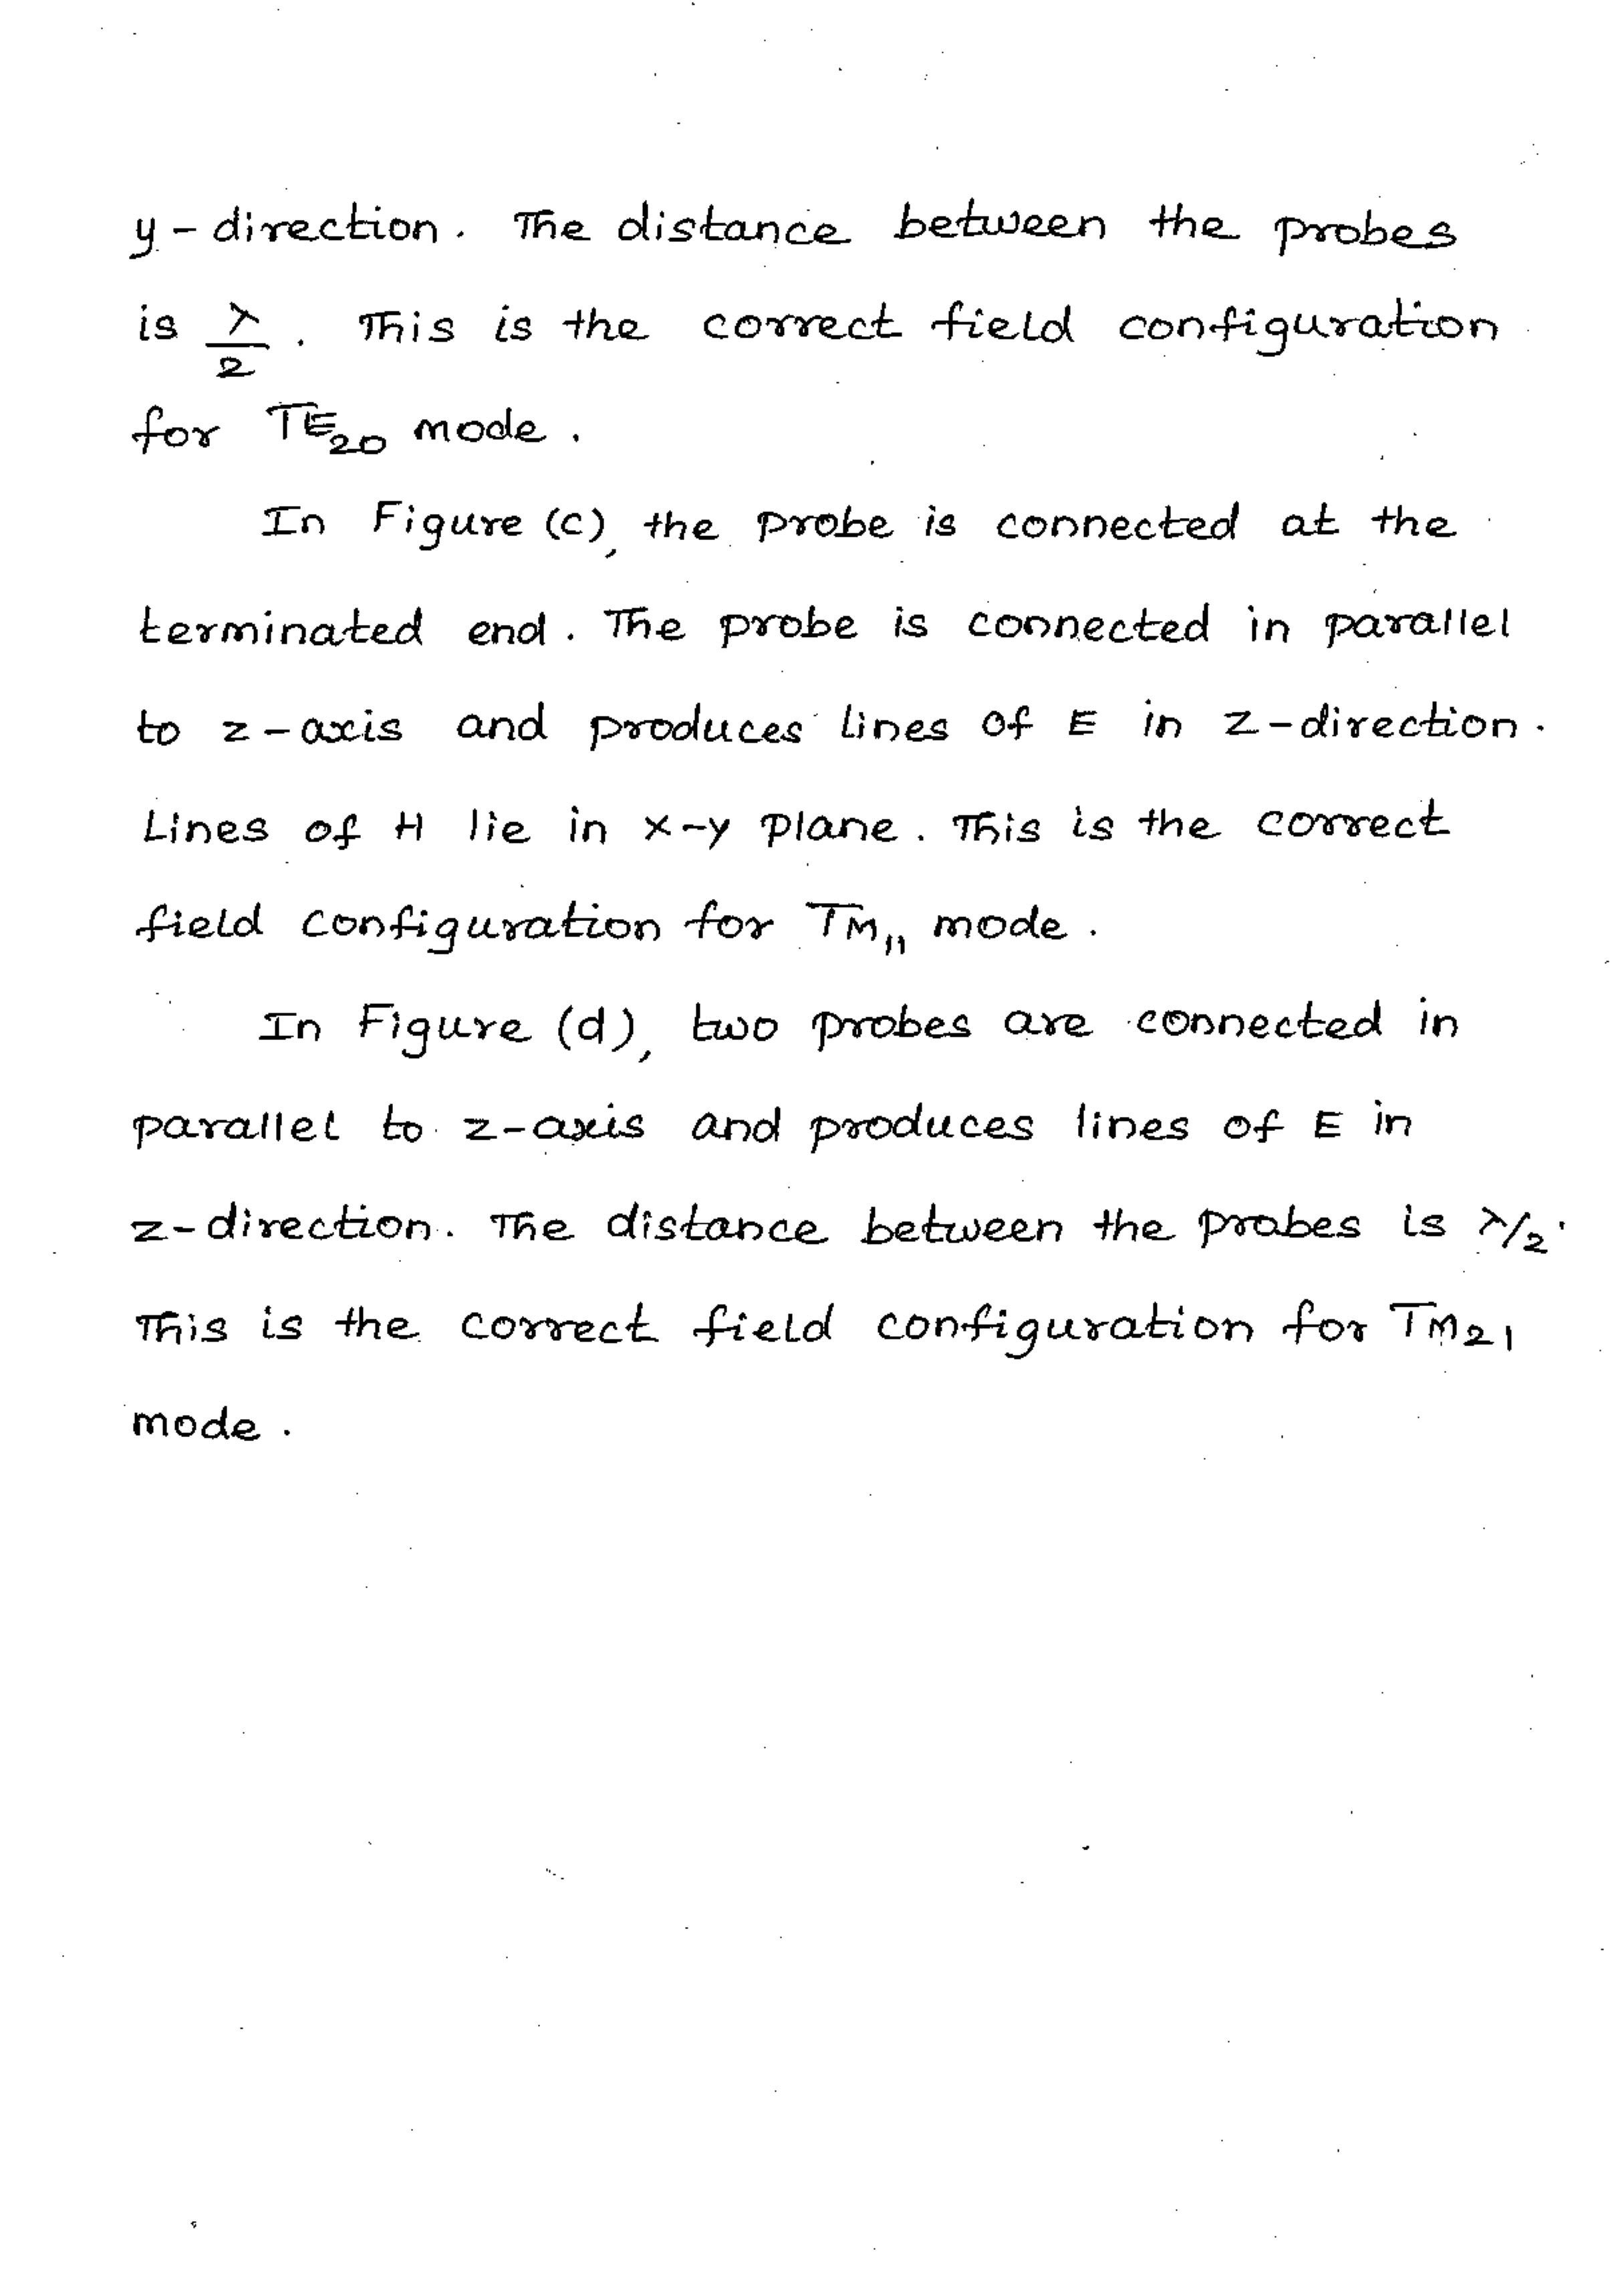 y-direction. The distance between the probes
is λ/2. This is the correct field configuration
for TE₂₀ mode.
In Figure (c), the probe is connected at the
terminated end. The probe is connected in parallel
to z-axis and produces lines of E in z-direction.
Lines of H lie in x-y plane. This is the correct
field configuration for TM₁₁ mode.
In Figure (d), two probes are connected in
parallel to z-axis and produces lines of E in
z-direction. The distance between the probes is λ/2.
This is the correct field configuration for TM₂₁
mode.